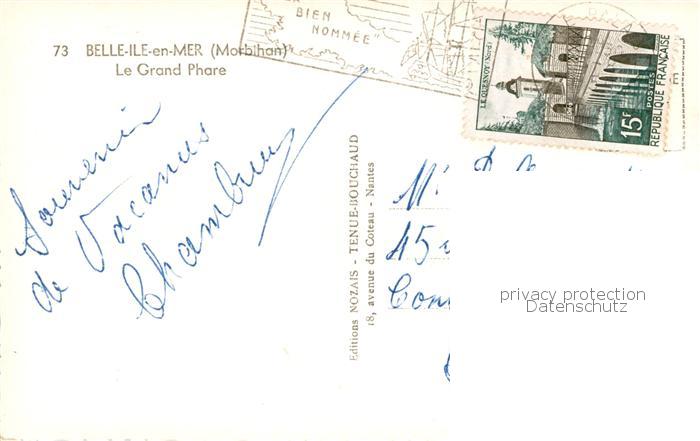 BIEN
NOMMÉE"
73 BELLE-ILE-en-MER (Morbihan)
Le Grand Phare
LE QUESNOY (Nord)
15F
POSTES
REPUBLIQUE FRANÇAISE
Souvenir
de Vacances
Editions NOZAIS - TENUE-BOUCHAUD
18, avenue du Coteau - Nantes
45
privacy protection
Datenschutz